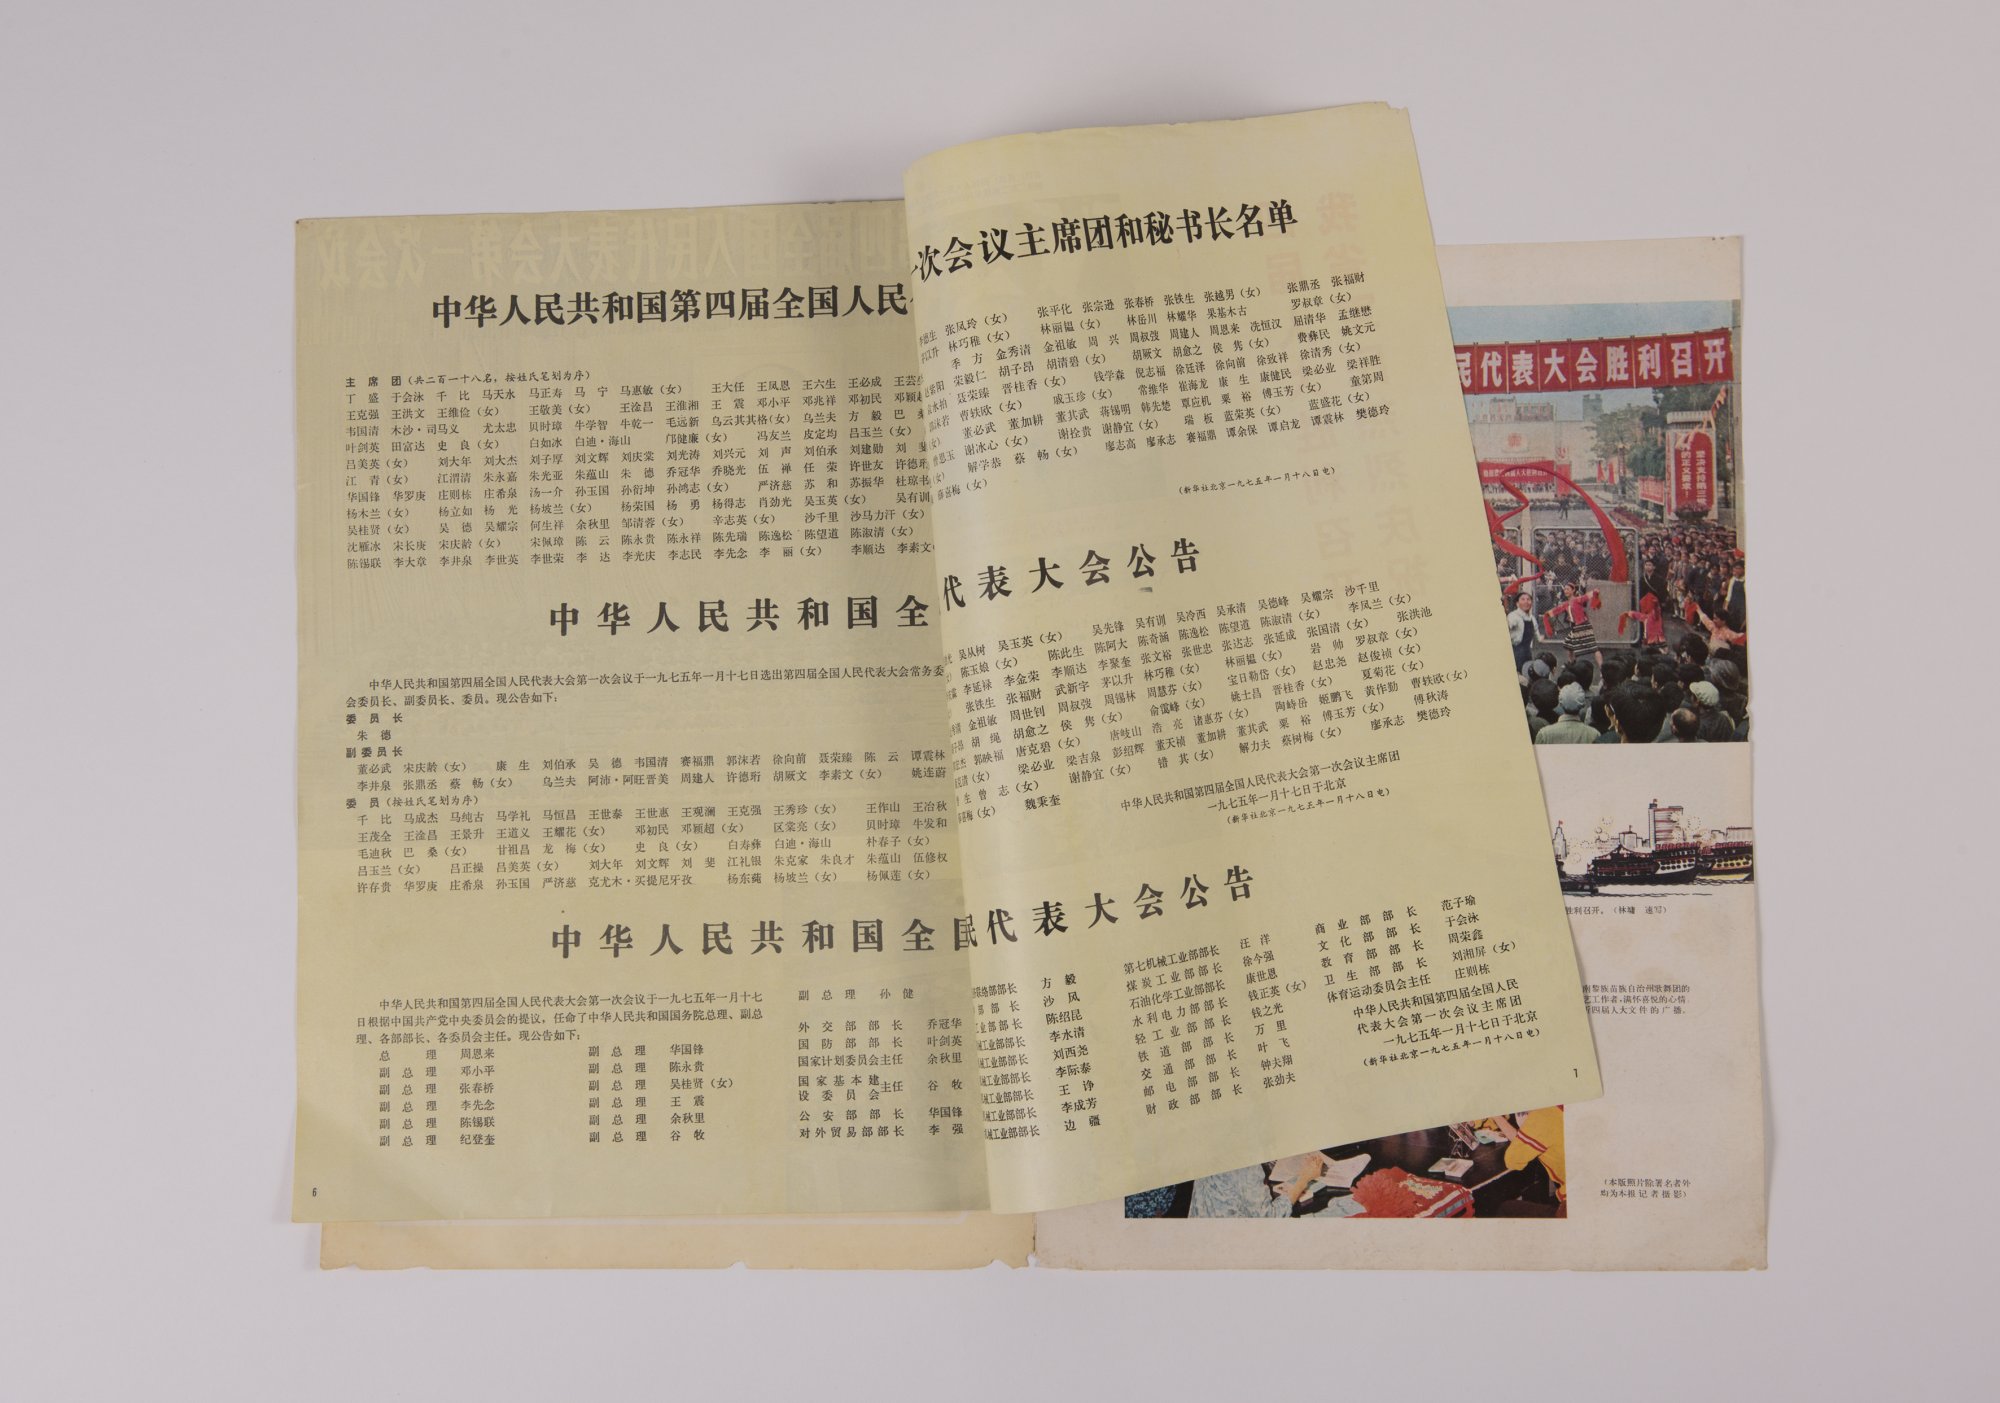 中华人民共和国第四届全国人民
次会议主席团和秘书长名单
主 席 团（共二百一十八名，按姓氏笔划为序）
丁 盛 于会泳 千 比 马天水 马正寿 马 宁 马惠敏（女） 王大任 王凤恩 王六生 王必成
王克强 王洪文 王维俭（女） 王敬美（女） 王淦昌 王淮湘 王 震 邓小平 邓兆祥 邓初民
韦国清 木沙·司马义 尤太忠 贝时璋 牛学智 牛乾一 毛远新 乌云其其格（女） 乌兰夫 方 毅
叶剑英 田富达 史 良（女） 白如冰 白迪·海山 邝健廉（女） 冯友兰 皮定均 吕玉兰（女）
吕美英（女） 刘大年 刘大杰 刘子厚 刘文辉 刘庆棠 刘光涛 刘兴元 刘 声 刘伯承 刘建勋
江 青（女） 江渭清 朱永嘉 朱光亚 朱蕴山 朱 德 乔冠华 乔晓光 伍 禅 任 荣 许世友
华国锋 华罗庚 庄则栋 庄希泉 汤一介 孙玉国 孙衍坤 孙鸿志（女） 严济慈 苏 和 苏振华
杨木兰（女） 杨立如 杨 光 杨坡兰（女） 杨荣国 杨 勇 杨得志 肖劲光 吴玉英（女）
吴桂贤（女） 吴 德 吴耀宗 何生祥 余秋里 邹清蓉（女） 辛志英（女） 沙千里 沙马力汗（女）
沈雁冰 宋长庚 宋庆龄（女） 宋佩璋 陈 云 陈永贵 陈永祥 陈先瑞 陈逸松 陈望道 陈淑清（女）
陈锡联 李大章 李井泉 李世英 李世荣 李 达 李光庆 李志民 李先念 李 丽（女） 李顺达
张凤玲（女） 张平化 张宗逊 张春桥 张铁生 张越男（女） 张鼎丞 张福财
林巧稚（女） 林丽韫（女） 林岳川 林耀华 果基木古 罗叔章（女）
季 方 金秀清 金祖敏 周 兴 周叔弢 周建人 周恩来 冼恒汉 屈清华 孟继懋
荣毅仁 胡子昂 胡清碧（女） 胡厥文 胡愈之 侯 隽（女） 费彝民 姚文元
聂荣臻 晋桂香（女） 钱学森 倪志福 徐廷泽 徐向前 徐致祥 徐清秀（女） 梁必业 梁祥胜
曹轶欧（女） 戚玉珍（女） 常维华 崔海龙 康 生 康健民 粟 裕 傅玉芳（女） 童第周
董必武 董加耕 董其武 蒋锡明 韩先楚 覃应机 瑞 板 蓝荣英（女） 蓝盛花（女）
谢冰心（女） 谢拴贵 谢静宜（女） 廖志高 廖承志 赛福鼎 谭余保 谭启龙 谭震林 樊德玲
解学恭 蔡 畅（女）
（新华社北京一九七五年一月十八日电）
中华人民共和国全
代表大会公告
中华人民共和国第四届全国人民代表大会第一次会议于一九七五年一月十七日选出第四届全国人民代表大会常务委
会委员长、副委员长、委员。现公告如下：
委 员 长
朱 德
副委员长
董必武 宋庆龄（女） 康 生 刘伯承 吴 德 韦国清 赛福鼎 郭沫若 徐向前 聂荣臻 陈 云 谭震林
李井泉 张鼎丞 蔡 畅（女） 乌兰夫 阿沛·阿旺晋美 周建人 许德珩 胡厥文 李素文（女） 姚连蔚
委 员（按姓氏笔划为序）
千 比 马成杰 马纯古 马学礼 马恒昌 王世泰 王世惠 王观澜 王克强 王秀珍（女） 王作山 王冶秋
王茂全 王淦昌 王景升 王道义 王耀花（女） 邓初民 邓颖超（女） 区棠亮（女） 贝时璋 牛发和
毛迪秋 巴 桑（女） 甘祖昌 龙 梅（女） 史 良（女） 白寿彝 白迪·海山 朴春子（女）
吕玉兰（女） 吕正操 吕美英（女） 刘大年 刘文辉 刘 斐 江礼银 朱克家 朱良才 朱蕴山 伍修权
许存贵 华罗庚 庄希泉 孙玉国 严济慈 克尤木·买提尼牙孜 杨东莼 杨坡兰（女） 杨佩莲（女）
吴从树 吴玉英（女） 吴先锋 吴有训 吴冷西 吴承清 吴德峰 吴耀宗 沙千里
陈玉娘（女） 陈此生 陈阿大 陈奇涵 陈逸松 陈望道 陈淑清（女） 李凤兰（女）
李延禄 李金荣 李顺达 李聚奎 张文裕 张世忠 张达志 张延成 张国清（女） 张洪池
张铁生 张福财 武新宇 茅以升 林巧稚（女） 林丽韫（女） 岩 帅 罗叔章（女）
金祖敏 周世钊 周叔弢 周锡林 周慧芬（女） 宝日勒岱（女） 赵忠尧 赵俊祯（女）
胡 绳 胡愈之 侯 隽（女） 俞霭峰（女） 姚士昌 晋桂香（女） 夏菊花（女）
郭映福 唐克碧（女） 唐岐山 浩 亮 诸惠芬（女） 陶峙岳 姬鹏飞 黄作勤 曹轶欧（女）
梁必业 梁吉泉 彭绍辉 董天祯 董加耕 董其武 粟 裕 傅玉芳（女） 傅秋涛
曾 志（女） 谢静宜（女） 错 其（女） 解力夫 蔡树梅（女） 廖承志 樊德玲
魏秉奎
中华人民共和国第四届全国人民代表大会第一次会议主席团
一九七五年一月十七日于北京
（新华社北京一九七五年一月十八日电）
中华人民共和国全
民代表大会公告
中华人民共和国第四届全国人民代表大会第一次会议于一九七五年一月十七
日根据中国共产党中央委员会的提议，任命了中华人民共和国国务院总理、副总
理、各部部长、各委员会主任。现公告如下：
总 理 周恩来
副 总 理 邓小平
副 总 理 张春桥
副 总 理 李先念
副 总 理 陈锡联
副 总 理 纪登奎
副 总 理 华国锋
副 总 理 陈永贵
副 总 理 吴桂贤（女）
副 总 理 王 震
副 总 理 余秋里
副 总 理 谷 牧
副 总 理 孙 健
外 交 部 部 长 乔冠华
国 防 部 部 长 叶剑英
国家计划委员会主任 余秋里
国家基本建设委员会主任 谷 牧
公 安 部 部 长 华国锋
对外贸易部部长 李 强
联络部部长 方 毅
部 部 长 沙 风
工业部部长 陈绍昆
械工业部部长 李水清
械工业部部长 刘西尧
械工业部部长 李际泰
械工业部部长 王 诤
械工业部部长 李成芳
械工业部部长 边 疆
第七机械工业部部长 汪 洋
煤炭工业部部长 徐今强
石油化学工业部部长 康世恩
水利电力部部长 钱正英（女）
轻工业部部长 钱之光
铁 道 部 部 长 万 里
交 通 部 部 长 叶 飞
邮 电 部 部 长 钟夫翔
财 政 部 部 长 张劲夫
商 业 部 部 长 范子瑜
文 化 部 部 长 于会泳
教 育 部 部 长 周荣鑫
卫 生 部 部 长 刘湘屏（女）
体育运动委员会主任 庄则栋
中华人民共和国第四届全国人民
代表大会第一次会议主席团
一九七五年一月十七日于北京
（新华社北京一九七五年一月十八日电）
6
7
民代表大会胜利召开
胜利召开。（林墉 速写）
南黎族苗族自治州歌舞团的
艺工作者，满怀喜悦的心情
四届人大文件的广播。
（本版照片除署名者外
均为本报记者摄影）